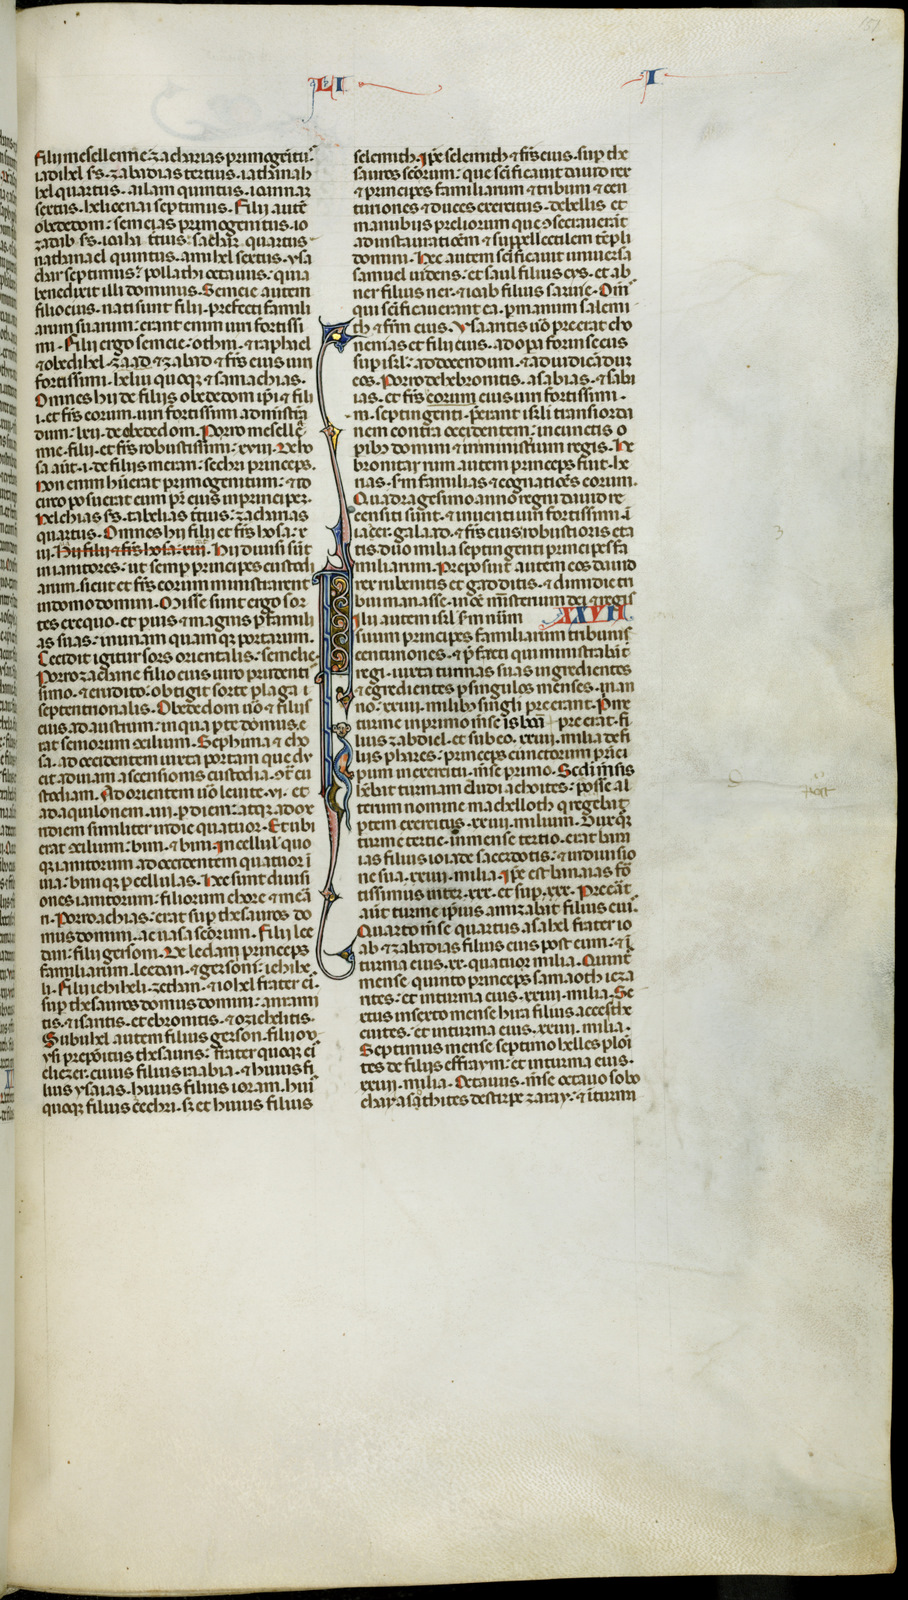 LI I
151
filii mesellemie. zacharias primogenitus
iadihel ss. zabadias tertius. iathanah
hel quartus. ailam quintus. iohannan
sextus. helioenai septimus. Filii autē
obededom: semeias primogenitus. io
zadib ss. ioaha t̄tius: sachar quartus
nathanael quintus. amihel sextus. ysa
char septimus: pollathi octauus: quia
benedixit illi dominus. Semeie autem
filio eius. nati sunt filii. prefecti famili
arum suarum: erant enim uiri fortissi
mi. Filii ergo semeie: othni. ⁊ raphael
⁊ obedihel. zaad ⁊ zabad ⁊ fr̄s eius uiri
fortissimi. heliu quoq̨ ⁊ samachias.
Omnes hii de filiis obededom ip̄i ⁊ fili
i. et fr̄s eorum. uiri fortissimi ad ministrā
dum: lxii. de obededom. Porro mesellē
mie. filii. et fr̄s robustissimi: xviii. De ho
sa aūt. i. de filiis merari: sechri princeps.
Non enim hūerat primogenitum: ⁊ id
circo posuerat eum pr̄ eius in principez.
Helchias ss. tabelias t̄tius: zacharias
quartus. Omnes hii filii et fr̄s hosa: x
iii. Hii filii ⁊ fr̄s hosa: xiii. Hii diuisi sūt
in ianitores: ut semp principes custodi
arum. sicut et fr̄s eorum ministrarent
in domo domini. Misse sunt ergo sor
tes ex equo. et paruis ⁊ magnis p̄ famili
as suas: in unam quam q̨ portarum.
Cecidit igitur sors orientalis: semelie
Porro zacharie filio eius uiro prudenti
simo. ⁊ erudito: obtigit sorte plaga
septentrionalis. Obededom ūo ⁊ filiis
eius. ad austrum: in qua p̄te domus. e
rat seniorum consilium. Sephima ⁊ cho
sa. ad occidentem iuxta portam que du
cit ad uiam ascensionis custodia. 9tra cu
stodiam. Ad orientem ūo leuite. vi. et
ad aquilonem. iiii. p diem: atq̨ ad me
ridiem similiter in die quatuor. Et ubi
erat 9cilium: bini. ⁊ bini. In cellul' quo
q̨ ianitorum ad occidentem quatuor ī
uia: bini q̨ p cellulas. Hee sunt diuisi
ones ianitorum: filiorum chore ⁊ mera
ri. Porro achias: erat sup thesauros do
mus domini. ac uasa scōrum. Filii lee
dan: filii gersoni. De ledam principes
familiarum. leedan. ⁊ gersoni: iehihe
li. Filii iehiheli. zethan. ⁊ iohel frater eī.
sup thesauros domus domini: amrami
tis. ⁊ isaritis. et ebronitis. ⁊ ozihelitis.
Subuhel autem filius gerson. filii mo
ysi prepositus thesauris: frater quoq̨ ei
eliezer. cuius filius raabia. ⁊ huius fi
lius ysaias. huius filius ioram. hui'
quoq̨ filius cechri. s; et huius filius
selemith. ip̄e selemith ⁊ fr̄s eius. sup the
sauros scōrum: que scīficauit dauid rex
⁊ principes familiarum ⁊ tribuni ⁊ cen
turiones ⁊ duces exercitus. de bellis et
manubiis preliorum que 9secrauerāt
ad instauratiōem. ⁊ suppellectilem tēpli
domini. Hec autem scīficauit uniuersa
samuel uidens: et saul filius cys. et ab
ner filius ner. ⁊ ioab filius saruie. Om̄s
qui scīficauerant ea. p manum salemi
th ⁊ fr̄m eius. Ysaaritis ūo preerat cho
nenias et filii eius. ad opa forinsecus
sup isrl: ad docendum. ⁊ ad iudicādum
eos. Porro de hebronitis. asabias. ⁊ sabi
ias. et fr̄s eorum eius uiri fortissimi.
m. septingenti. p̄erant isrl'i trans iorda
nem contra occidentem: in cunctis o
pib; domini ⁊ in ministerium regis. He
bronitarum autem princeps fuit. he
rias. s'm familias ⁊ cognatiōes eorum.
Quadragesimo anno regni dauid re
censiti sunt. ⁊ inuenti uiri fortissimi ī
iacer. galaad. ⁊ fr̄s eius robustioris eta
tis. duo milia septingenti principes fa
miliarum. Preposuit autem eos dauid
rex rubenitis et gadditis. ⁊ dimidie tri
bui manasse. in oē m̄sterium dei ⁊ regis
XXVII
ilii autem isrl' s'm num̄
suum principes familiarum tribuni
centuriones. ⁊ p̄fecti qui ministrabāt
regi. iuxta turmas suas ingredientes
⁊ egredientes p singulos menses. in an
no: xxiiii. milib; singl'i preerant. Pri
turme in primo m̄se isboā preerat. fi
lius zabdiel. et sub eo. xxiiii. milia de fi
liis phares: princeps cunctorum p̄nci
pum in exercitu. m̄se primo. Secd'i m̄sis
h̄ebat turmam dudi achoites: posse al
terum nomine macheloth q regebat
p̄tem exercitus. xxiiii. milium. Dux q̨
turme tertie. in mense tertio. erat ban
ias filius ioiade sacerdotis: ⁊ in diuisio
ne sua. xxiiii. milia. ip̄e est banaias fo
tissimus inter. xxx. et sup. xxx. Preeāt
aūt turme ip̄ius amizabat filius eius.
Quarto m̄se quartus asahel frater io
ab ⁊ zabadias filius eius post eum: ⁊ ī
turma eius. xx. quatuor milia. Quint'
mense. quinto princeps samaoth ieza
rites: et in turma eius. xxiiii. milia. Se
xtus in sexto mense hira filius acces the
cuites: et in turma eius. xxiiii. milia.
Septimus mense septimo helles ploni
tes de filiis effraym: et in turma eius.
xxiiii. milia. Octauus. m̄se octauo sobo
chay asathites de stirpe zaray: ⁊ ī turm